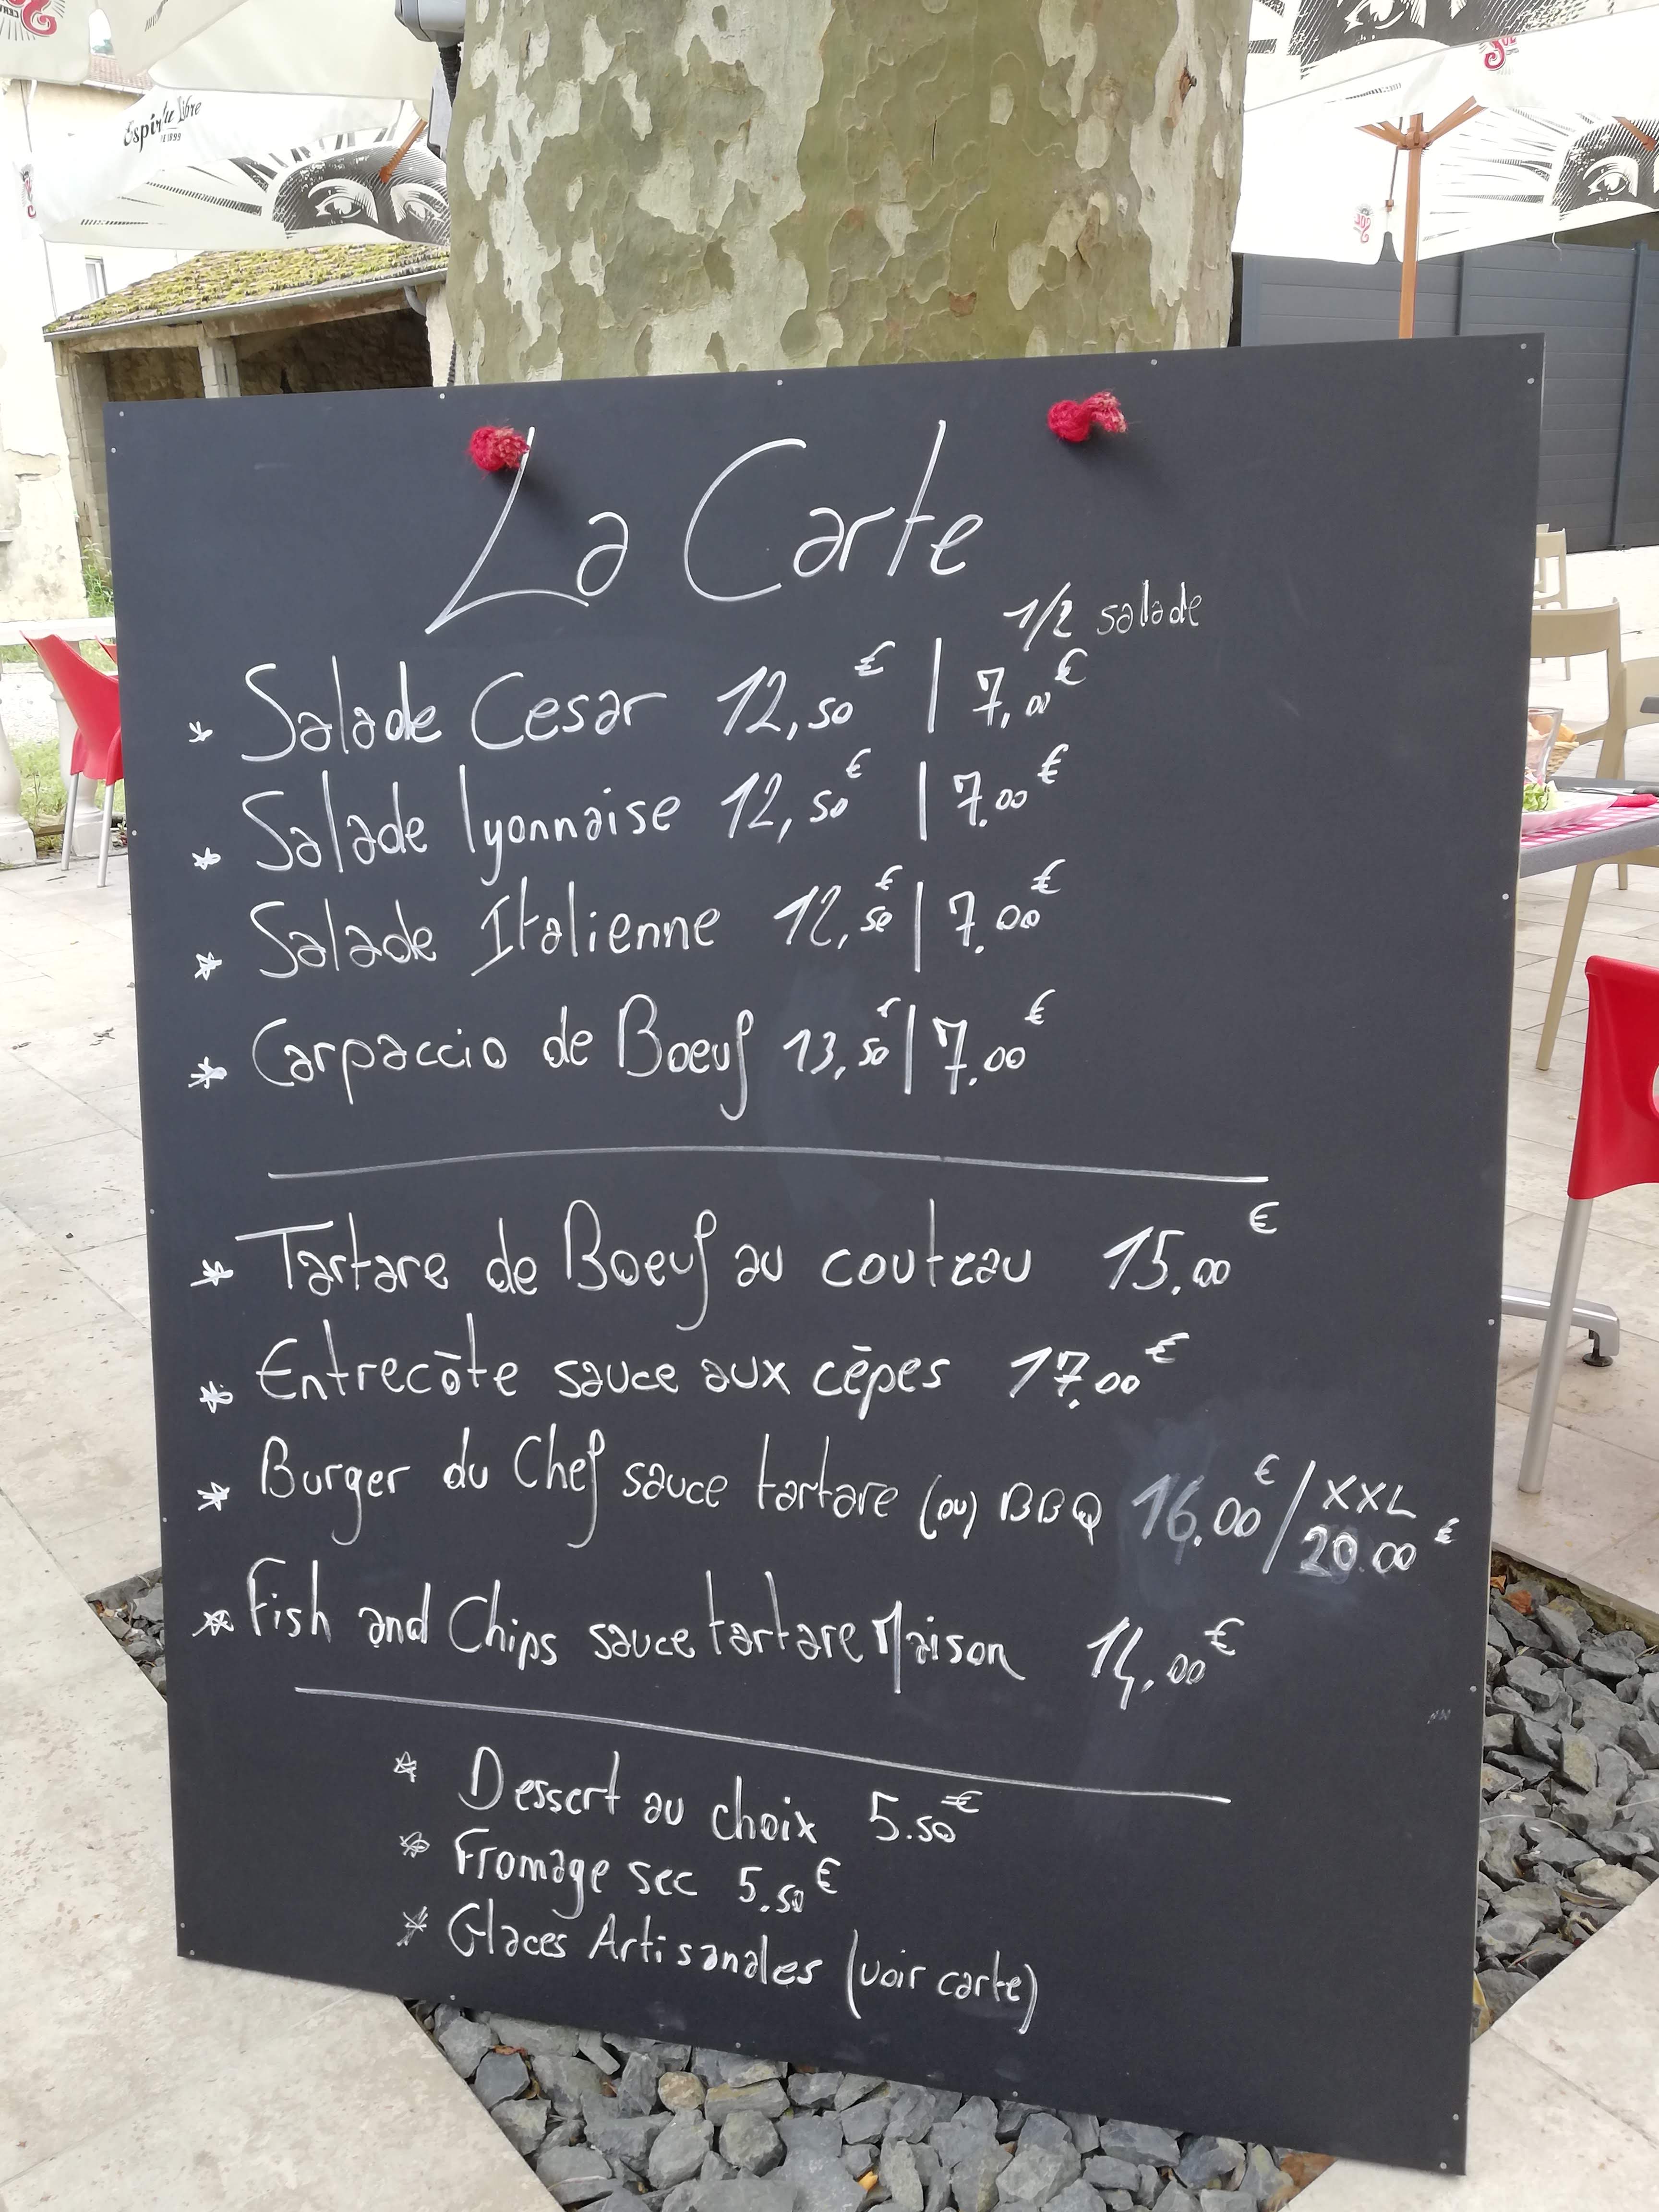 Espíritu Libre
DE 1899
SOL
SOL
La Carte
1/2 salade
* Salade Cesar 12,50€ | 7,00€
* Salade lyonnaise 12,50€ | 7.00€
* Salade Italienne 12,50€ | 7.00€
* Carpaccio de Boeuf 13,50€ | 7.00€
* Tartare de Boeuf au couteau 15.00€
* Entrecôte sauce aux cêpes 17.00€
* Burger du Chef sauce tartare (ou) BBQ 16.00€ / XXL 20.00€
* Fish and Chips sauce tartare Maison 14,00€
* Dessert au choix 5.50€
* Fromage sec 5.50€
* Glaces Artisanales (voir carte)